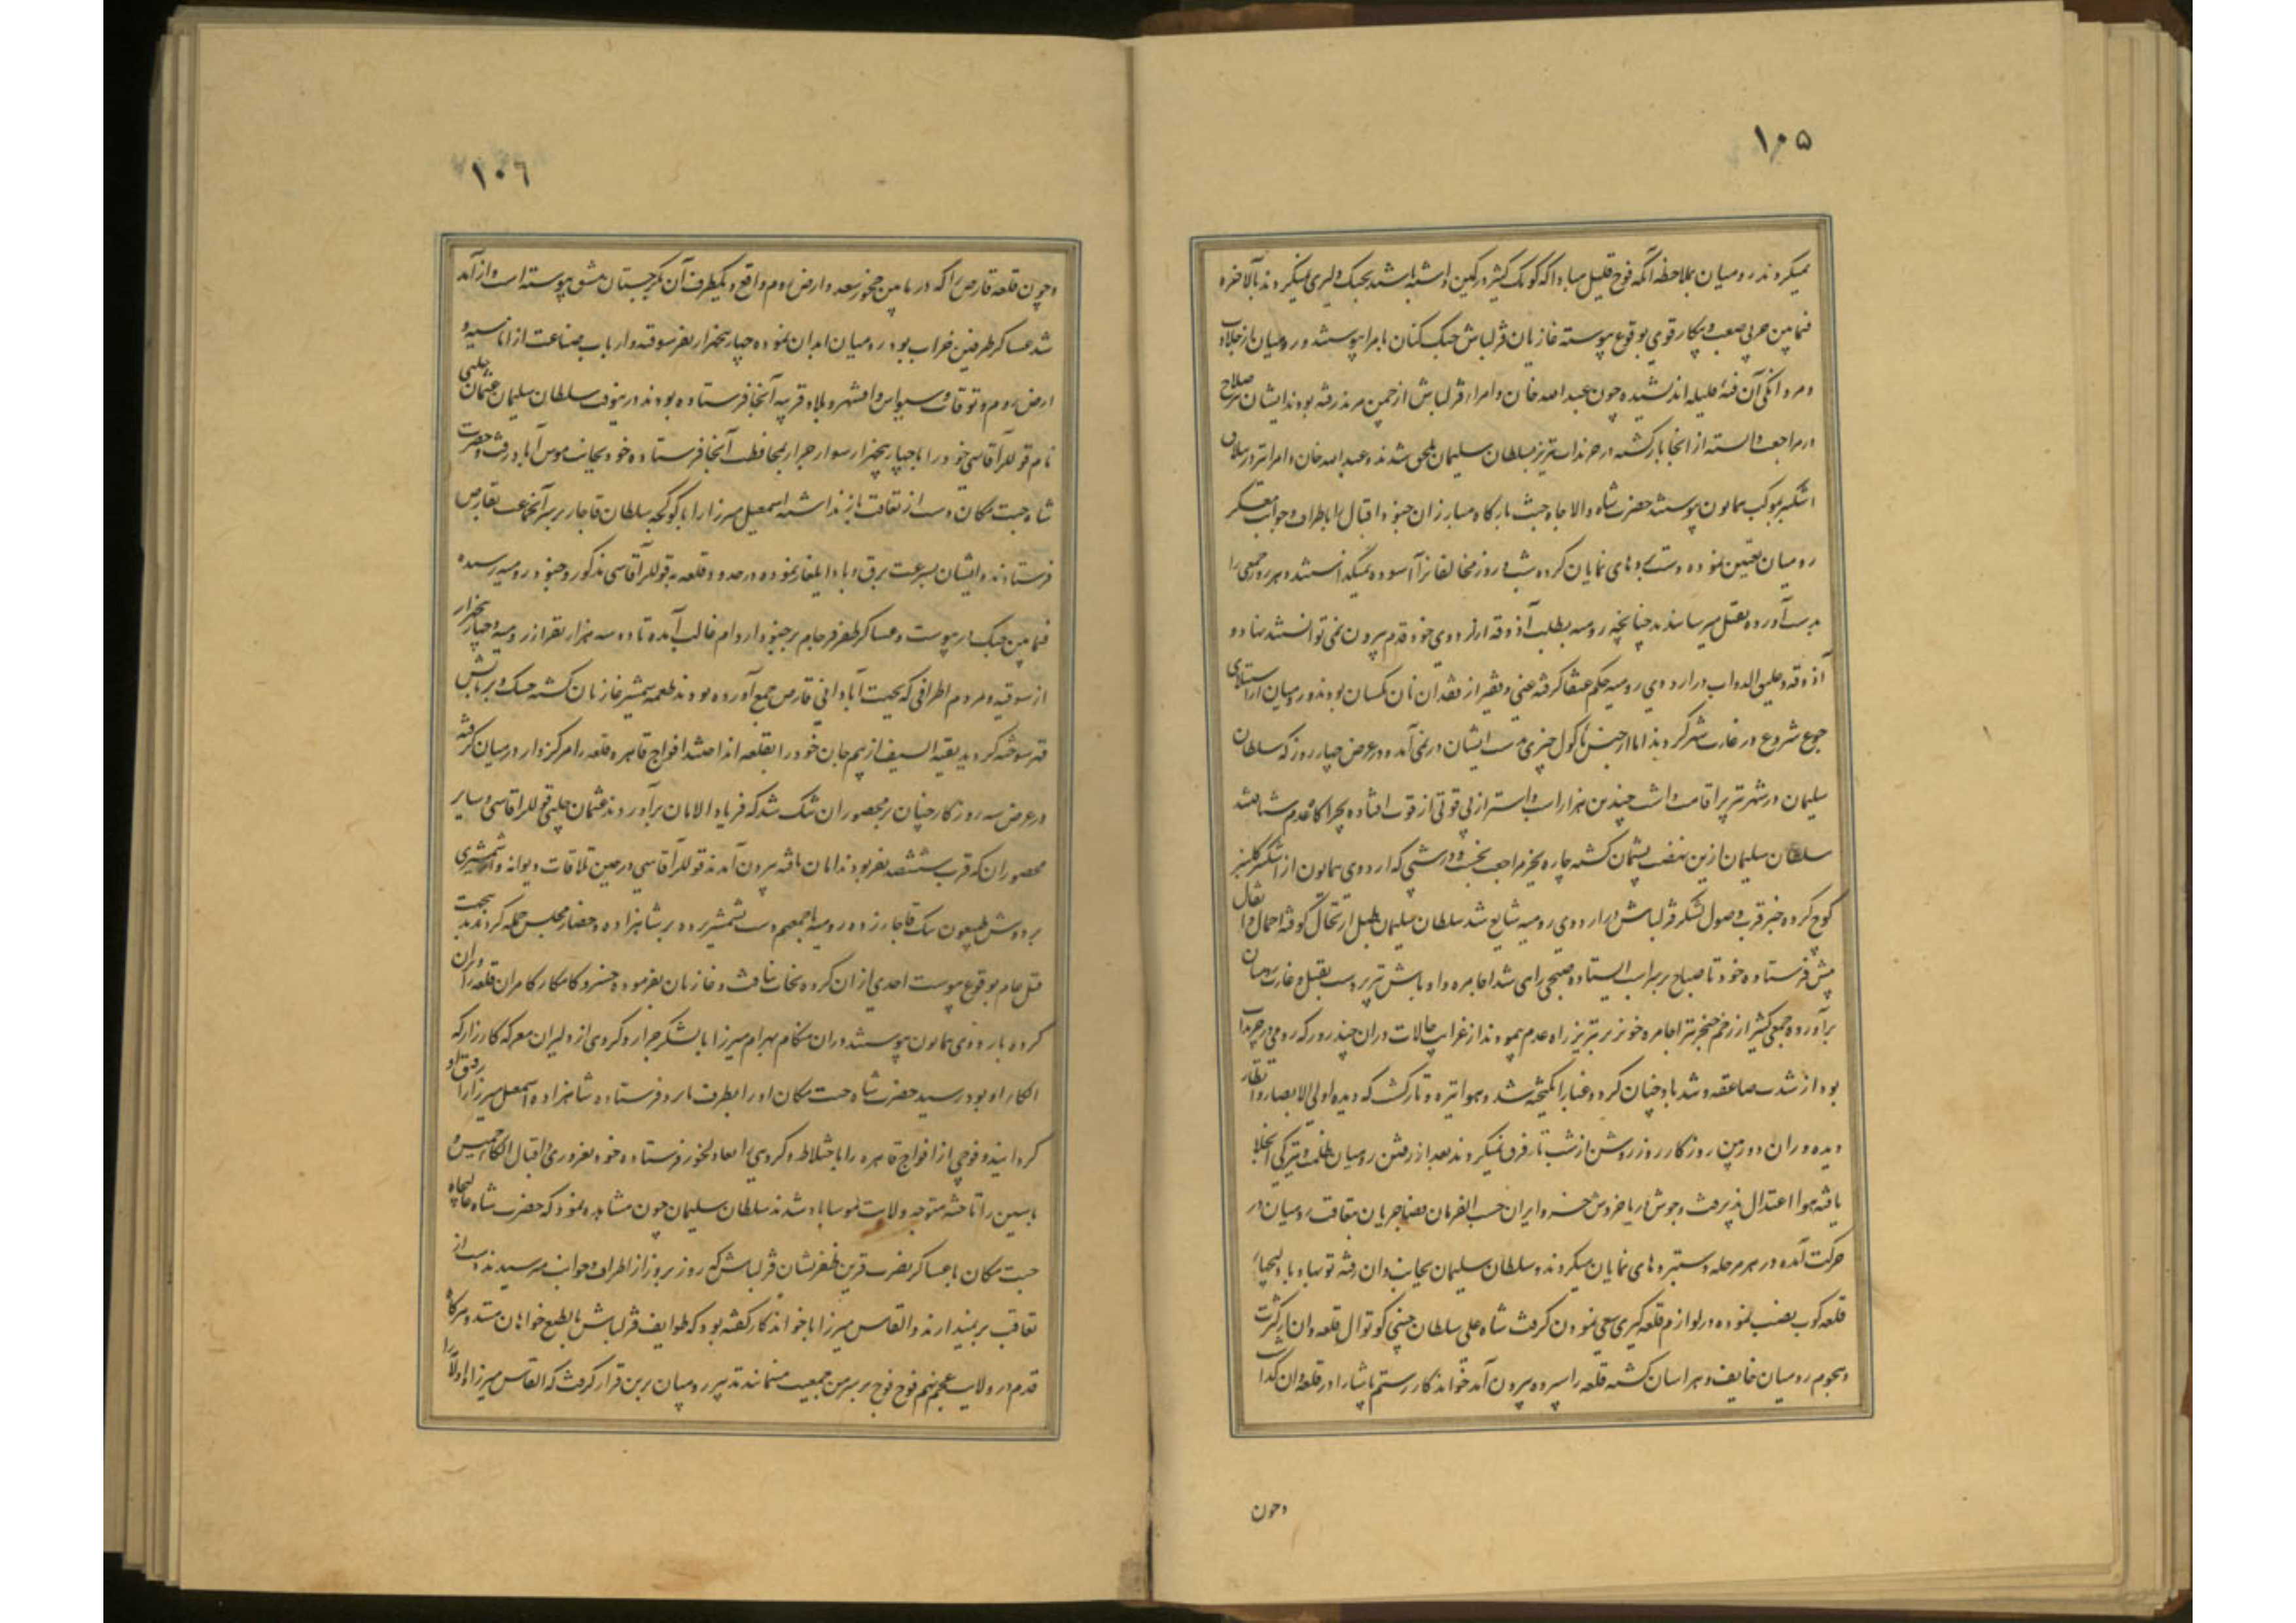 ۱۰۵
نمیکردند رومیان بملاحظه آنکه فوج قلیل مبادا که کومک کثیر در کمین داشته باشند بجنگ دلیری نمیکردند بالاخره
فیمابین حربی صعب و پیکار قوی بوقوع پیوسته غازیان قزلباش جنگ کنان بامرا پیوستند و رومیان از جلادت
و مردانکی آن فئه قلیله اندیشیده چون عبدالله خان و امراء قزلباش از چمن مرند رفته بودند ایشان صلاح
در مراجعت دانسته از انجا بازکشته در چرنداب تبریز بسلطان سلیمان ملحق شدند و عبدالله خان و امرا نیز در
اشکنبر بموکب همایون پیوستند حضرت شاه والا جاه جنت بارگاه مبارزان جنود اقبال را باطراف و جوانب معسکر
رومیان تعیین نموده دستبردهای نمایان کرده شب و روز مخالفانرا آسوده نمیگذاشتند و هر روز جمعی را
بدست آورده بقتل میرسانیدند چنانچه رومیه بطلب آذوقه از اردوی خود قدم بیرون نمی توانستند نهاد و
آذوقه و علیق الدواب در اردوی رومیه حکم عنقا گرفته غنی و فقیر از فقدان نان یکسان بودند و رومیان از استیلای
جوع شروع در غارت شهر کردند اما از جنس ماکول چیزی بدست ایشان در نمی آمد و در عرض چهار روز که سلطان
سلیمان در شهر تبریز اقامت داشت چندین هزار اسب و استر از بی قوتی از قوت افتاده بچراگاه عدم شتافتند
سلطان سلیمان ازین نهضت پشیمان کشته چاره بجز مراجعت نجست و در شبی که اردوی همایون از اشکنبر
کوچ کرده خبر قرب وصول لشکر قزلباش در اردوی رومیه شایع شد سلطان سلیمان طبل ارتحال کوفته احمال و اثقال
پیش فرستاده خود تا صباح بر سر اسب ایستاده صبحی راهی شد اجامره و اوباش تبریز دست بقتل و غارت رومیان
برآورده جمعی کثیر از زخم خنجر تیز اجامره خونریز تبریز راه عدم پیمودند از غرایب حالات در آن چند روز که رومی در چرنداب
بود از شدت صاعقه و تند باد چنان گرد و غبار انگیخته شد و هوا تیره و تار گشت که دیده اولی الابصار و انظار
دیده وران دوربین روزگار روز روشن از شب تار فرق نمیکردند بعد از رفتن رومیان ظلمت و تیرگی انجلا
یافته هوا اعتدال پذیرفت و جوش دریا خروش خسرو ایران حسب الفرمان قضا جریان بتعاقب رومیان در
حرکت آمده در هر مرحله دستبردهای نمایان میکردند و سلطان سلیمان بجانب وان رفته توپها و بادلیجهاء
قلعه کوب نصب نموده در لوازم قلعه گیری سعی نمودن گرفت شاه علی سلطان چینی کوتوال قلعه وان از کثرت
و هجوم رومیان خایف و هراسان کشته قلعه را سپرده بیرون آمد خواندکار رستم پاشا را در قلعه وان گذاشت
وچون
۱۰۶
وچون قلعه قارص را که در مابین چخور سعد و ارض روم واقع و یکطرف آن بگرجستان مشق پیوسته است و از آمد
شد عساکر طرفین خراب بود رومیان آبدان نموده چهار پنجهزار نفر سوقه و ارباب صناعت از اماسیه و
ارض روم و توقات و سیواس و اقشهر و بلاد قریبه آنجا فرستاده بودند درینوقت سلطان سلیمان عثمان چلبی
نام قوللر آقاسی خود را با چهار پنجهزار سوار جرار بمحافظت آنجا فرستاده خود بجانب موس آباد رفت و حضرت
شاه جنت مکان دست از تعاقب باز نداشته اسمعیل میرزا را با کوکجه سلطان قاجار بر سر آنجماعت بقارص
فرستادند و ایشان بسرعت برق و باد ایلغار نموده در حدود قلعه بقوللر آقاسی مذکور و جنود رومیه رسیده
فیمابین جنگ در پیوست و عساکر ظفر فرجام بر جنود اروام غالب آمده تا دو سه هزار نفر از رومیه و چهار پنجهزار
از سوقیه و مردم اطرافی که بجهت آبادانی قارص جمع آورده بودند طعمه شمشیر غازیان کشته خشک و تر بآتش
قهر سوخته گردید بقیة السیف از بیم جان خود را بقلعه انداختند افواج قاهره قلعه را مرکزوار در میان گرفته
در عرض سه روز کار چنان بر محصوران تنگ شد که فریاد الامان برآوردند عثمان چلبی قوللر آقاسی و سایر
محصوران که قریب ششصد نفر بودند امان یافته بیرون آمدند قوللر آقاسی در حین ملاقات دیوانه وار شمشیری
بر دوش طیغون بیک قاجار زده رومیه باجمعهم دست بشمشیر برده بر شاهزاده و حضار مجلس حمله کردند بدینجهت
قتل عام بوقوع پیوست احدی از ان گروه نجات نیافت و غازیان بفرموده خسرو کامکار کامران قلعه را ویران
کرده باردوی همایون پیوستند در ان هنگام بهرام میرزا با لشکر جرار و گروهی از دلیران معرکه کارزار که
الکاء او بود رسید حضرت شاه جنت مکان او را بطرف فرستاده شاهزاده اسمعیل میرزا را رفیق او
کردانیدند و فوجی از افواج قاهره را باختلاط و گروهی را بعادلجوز فرستاده خود بفیروزی و اقبال الکاء خنس و
پاسین را تاخته متوجه ولایت موساباد شدند سلطان سلیمان چون مشاهده نمود که حضرت شاه عالیجاه
جنت مکان با عساکر نصرت قرین ظفر نشان قزلباش که روز بروز از اطراف و جوانب میرسیدند دست از
تعاقب بر نمیدارند و القاس میرزا با خواندکار گفته بود که طوایف قزلباش بالطبع خواهان منند و هرگاه
قدم در ولایت عجم نهم فوج فوج بر سر من جمعیت مینمایند تدبیر رومیان برین قرار گرفت که القاس میرزا را اولا